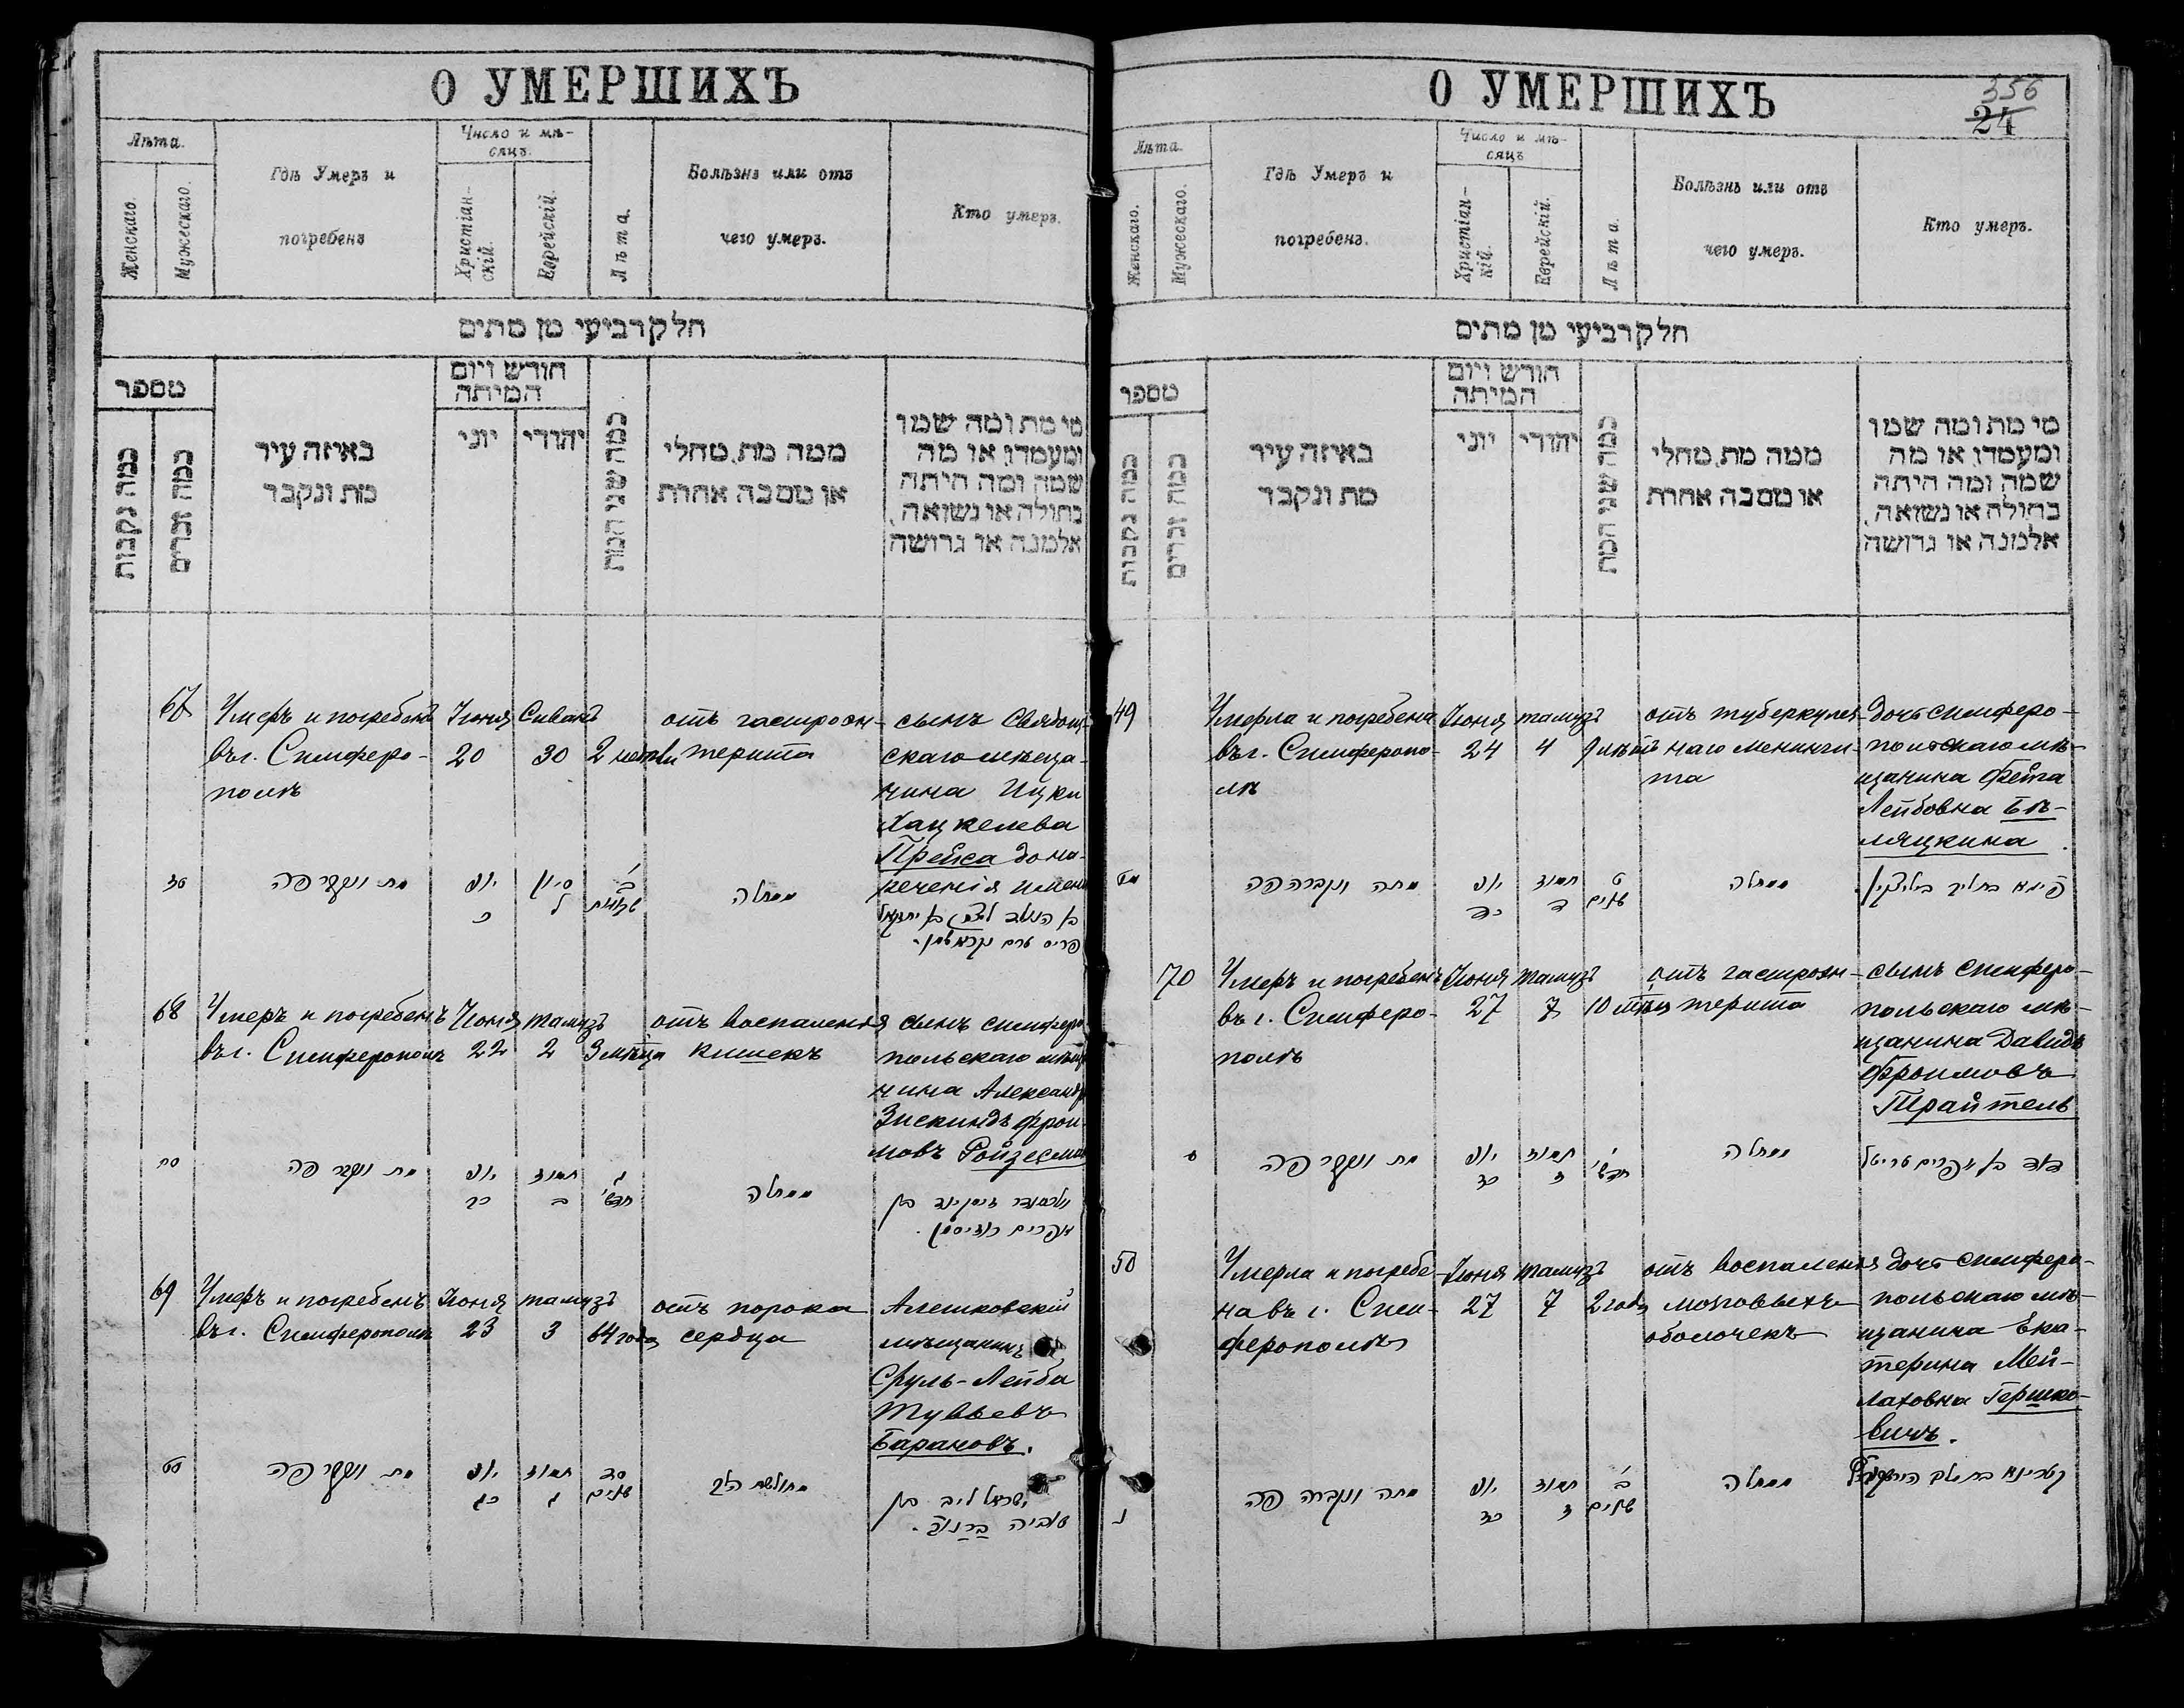 О УМЕРШИХЪ
Лѣта.
Женскаго.
Мужескаго.
Гдѣ Умеръ и
погребенъ
Число и мѣ-
сяцъ.
Христіан-
скій.
Еврейскій.
Лѣта.
Болѣзнь или отъ
чего умеръ.
Кто умеръ.
חלק רביעי מן מתים
מספר
כמה נקבות
כמה זכרים
באיזה עיר
מת ונקבר
חודש ויום
המיתה
יוני
יהודי
כמה שני המת
ממה מת, מחלי
או מסבה אחרת
מי מת ומה שמו
ומעמדו, או מה
שמה ומה היתה
בתולה או נשואה,
אלמנה או גרושה
67
Умеръ и погребенъ
въ г. Симферо-
полѣ
Іюня
20
Сивонъ
30
2 недѣли
отъ гастроэн-
терита
сынъ
скаго мѣща-
нина Ицки
Хацкелева
Прейса до на-
реченія имени
סז
מת ונקבר פה
יוני
כ
סיון
ל
ב׳
שבועות
ממחלה
בן הנולד ליצחק בן יחזקאל
פרייס טרם נקרא שמו.
68
Умеръ и погребенъ
въ г. Симферополѣ
Іюня
22
тамузъ
2
3 мѣсяца
отъ воспаленія
кишекъ
сынъ симферо
польскаго мѣща
нина Александръ
Зискиндъ Фрои-
мовъ Ройзесманъ
סח
מת ונקבר פה
יוני
כב
תמוז
ב
ג׳
חדשי׳
ממחלה
אלכסנדר זיסקינד בן
אפרים רויזיסמן.
69
Умеръ и погребенъ
въ г. Симферополѣ
Іюня
23
тамузъ
3
64 года
отъ порока
сердца
Алешковскій
мѣщанинъ
Сруль-Лейба
Тувьевъ
Барановъ.
סט
מת ונקבר פה
יוני
כג
תמוז
ג
סד
שנים
מחולשת הלב
ישראל ליב בן
טוביה ברנוב.
О УМЕРШИХЪ
356
24
Лѣта.
Женскаго.
Мужескаго.
Гдѣ Умеръ и
погребенъ.
Число и мѣ-
сяцъ
Христіан-
кій.
Еврейскій.
Лѣта.
Болѣзнь или отъ
чего умеръ.
Кто умеръ.
חלק רביעי מן מתים
מספר
כמה נקבות
כמה זכרים
באיזה עיר
מת ונקבר
חודש ויום
המיתה
יוני
יהודי
כמה שני המת
ממה מת, מחלי
או מסבה אחרת
מי מת ומה שמו
ומעמדו, או מה
שמה ומה היתה
בתולה או נשואה,
אלמנה או גרושה
49
Умерла и погребена
въ г. Симферопо-
лѣ
Іюня
24
тамузъ
4
9 лѣтъ
отъ туберкулез-
наго менинги-
та
дочь симферо-
польскаго мѣ-
щанина Фейга
Лейбовна Бѣ-
ляцкина.
מט
מתה ונקברה פה
יוני
כד
תמוז
ד
ט
שנים
ממחלה
פייגא בת ליב ביליצקין.
70
Умеръ и погребенъ
въ г. Симферо-
полѣ
Іюня
27
тамузъ
7
10 мѣсяц
отъ гастроэн-
терита
сынъ симферо-
польскаго мѣ-
щанина Давидъ
Фроимовъ
Трайтель
ע
מת ונקבר פה
יוני
כז
תמוז
ז
י׳
חדשי׳
ממחלה
דוד בן אפרים טרייטל
50
Умерла и погребе-
на въ г. Сим-
ферополѣ
Іюня
27
тамузъ
7
2 года
отъ воспаленія
мозговыхъ
оболочекъ
дочь симферо-
польскаго мѣ-
щанина Ека-
терина Мей-
лаховна Гершко-
вичъ.
נ
מתה ונקברה פה
יוני
כז
תמוז
ז
ב׳
שנים
ממחלה
קטרינא בת מלך הירשקוביץ